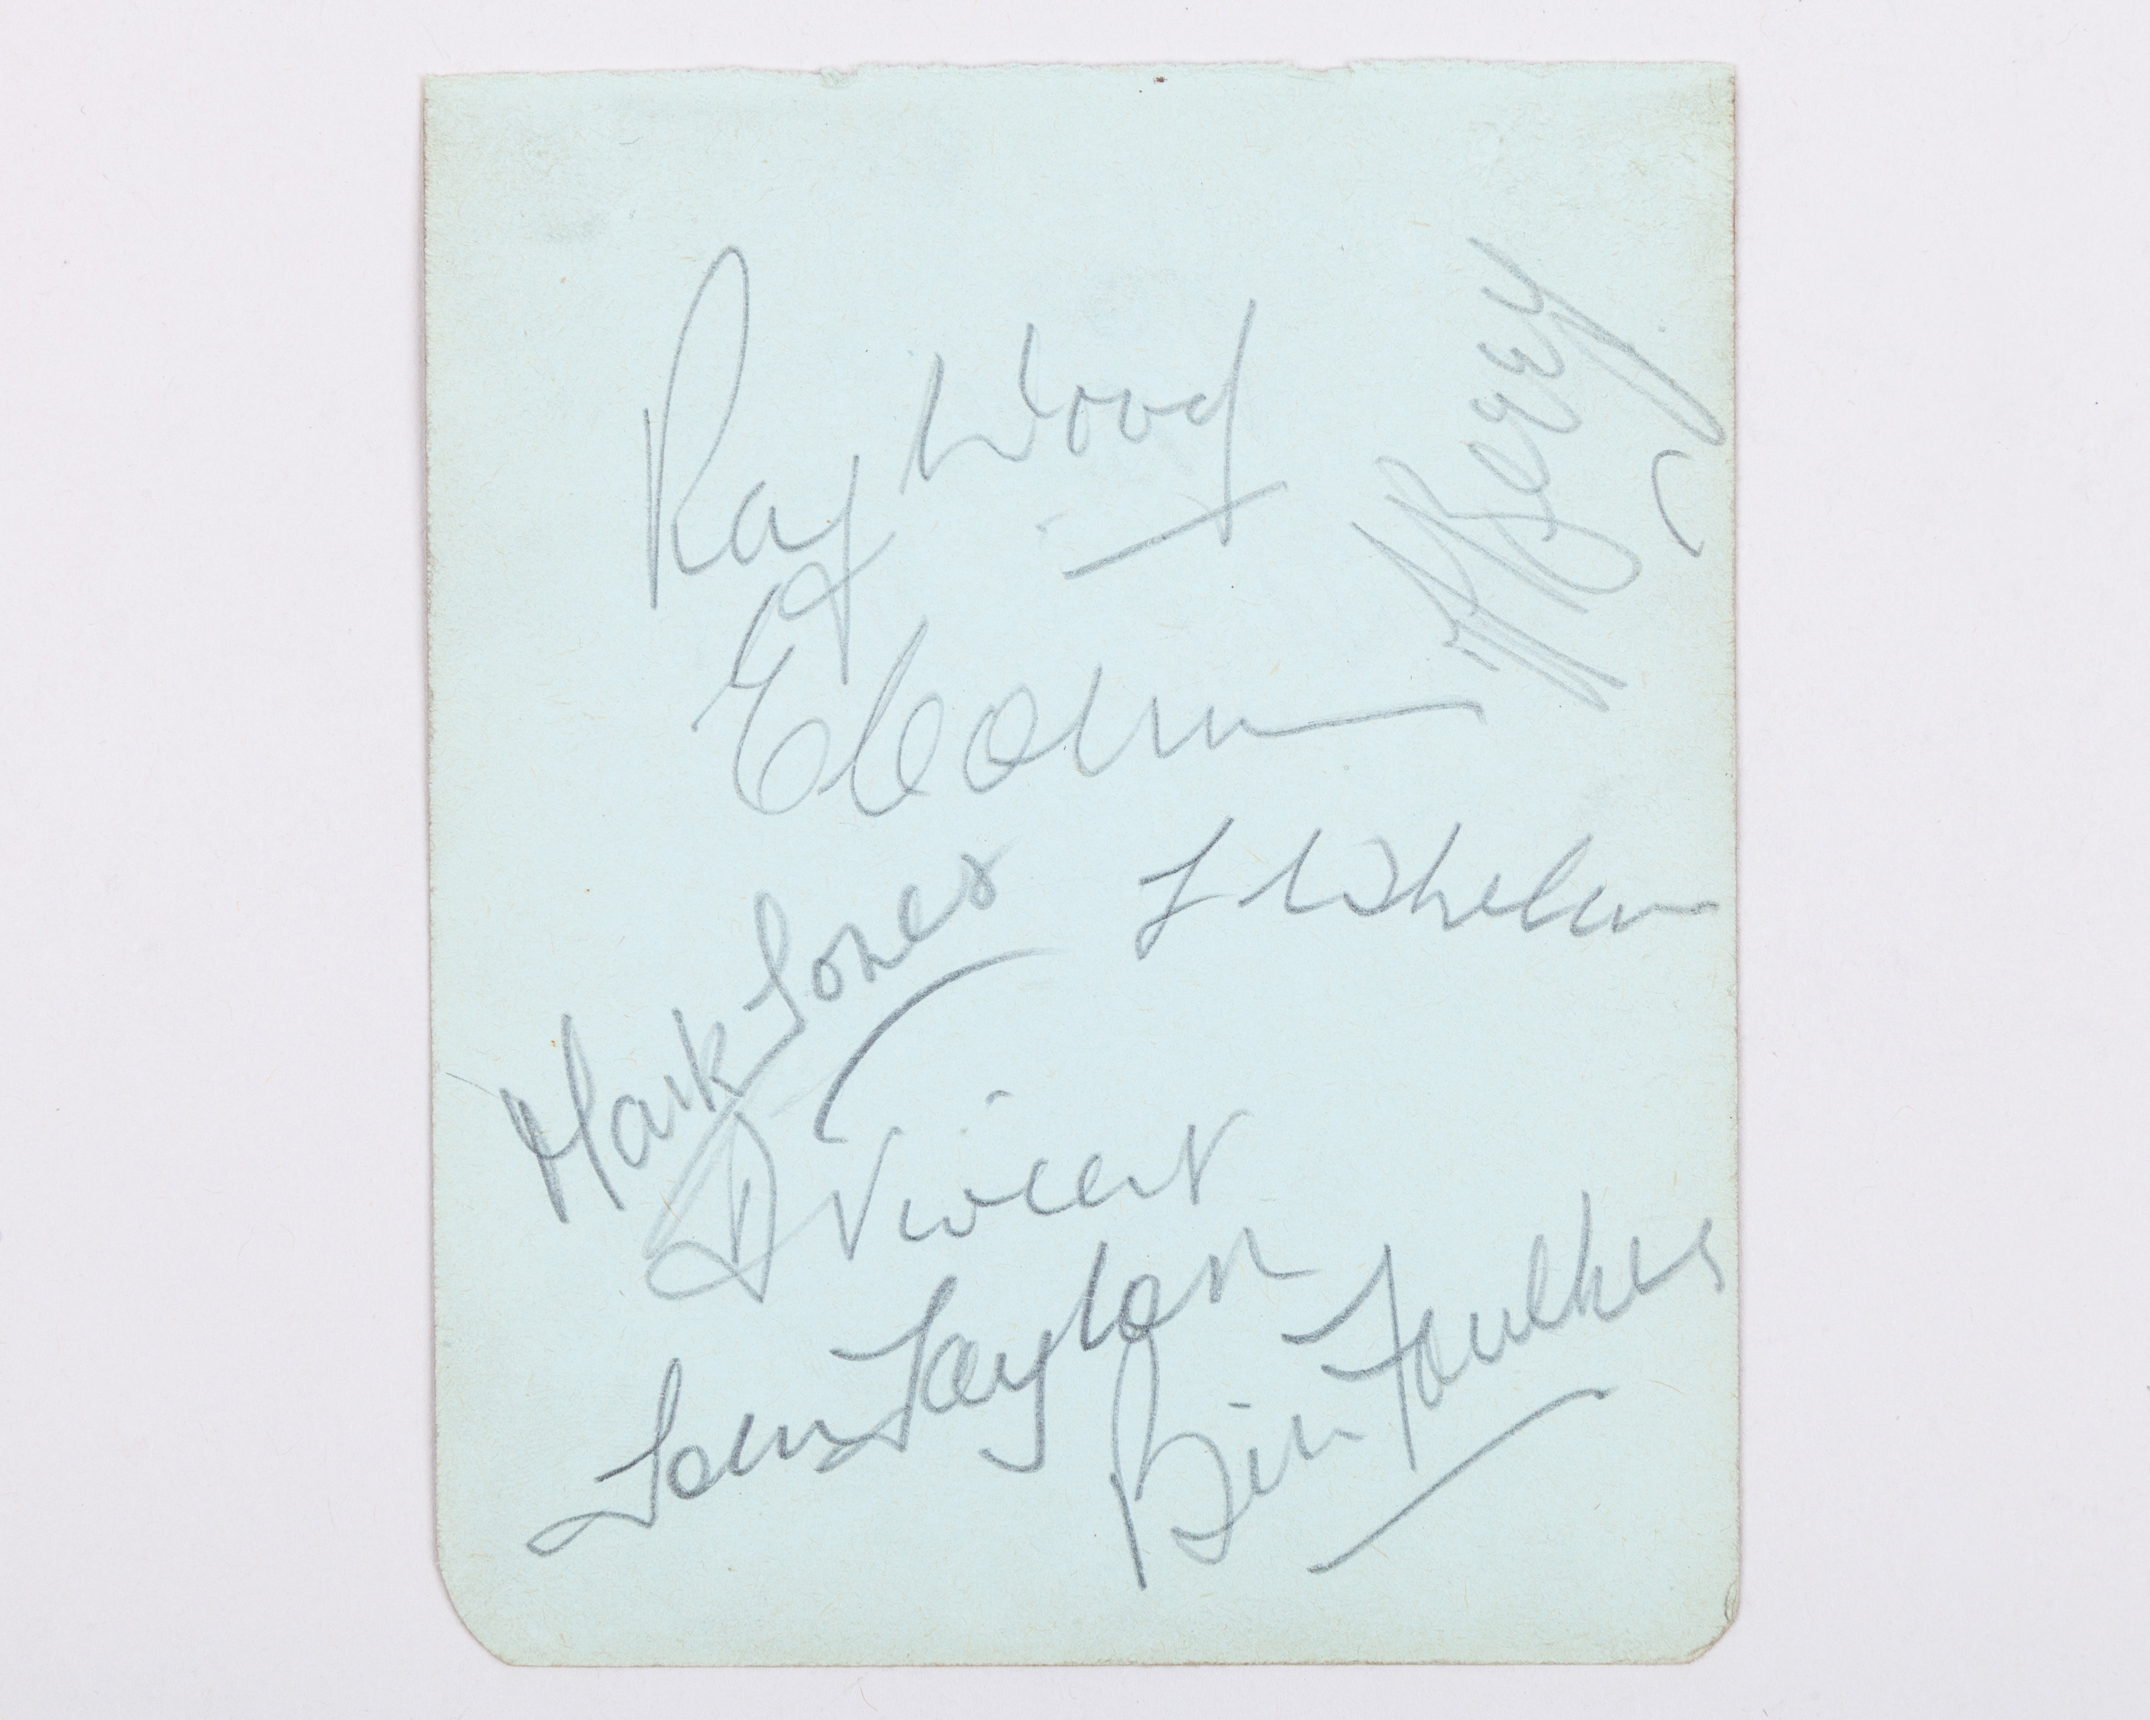 Ray Wood
J Berry
E Colman
Mark Jones
L Whelan
D Viollet
Tommy Taylor
Bill Foulkes